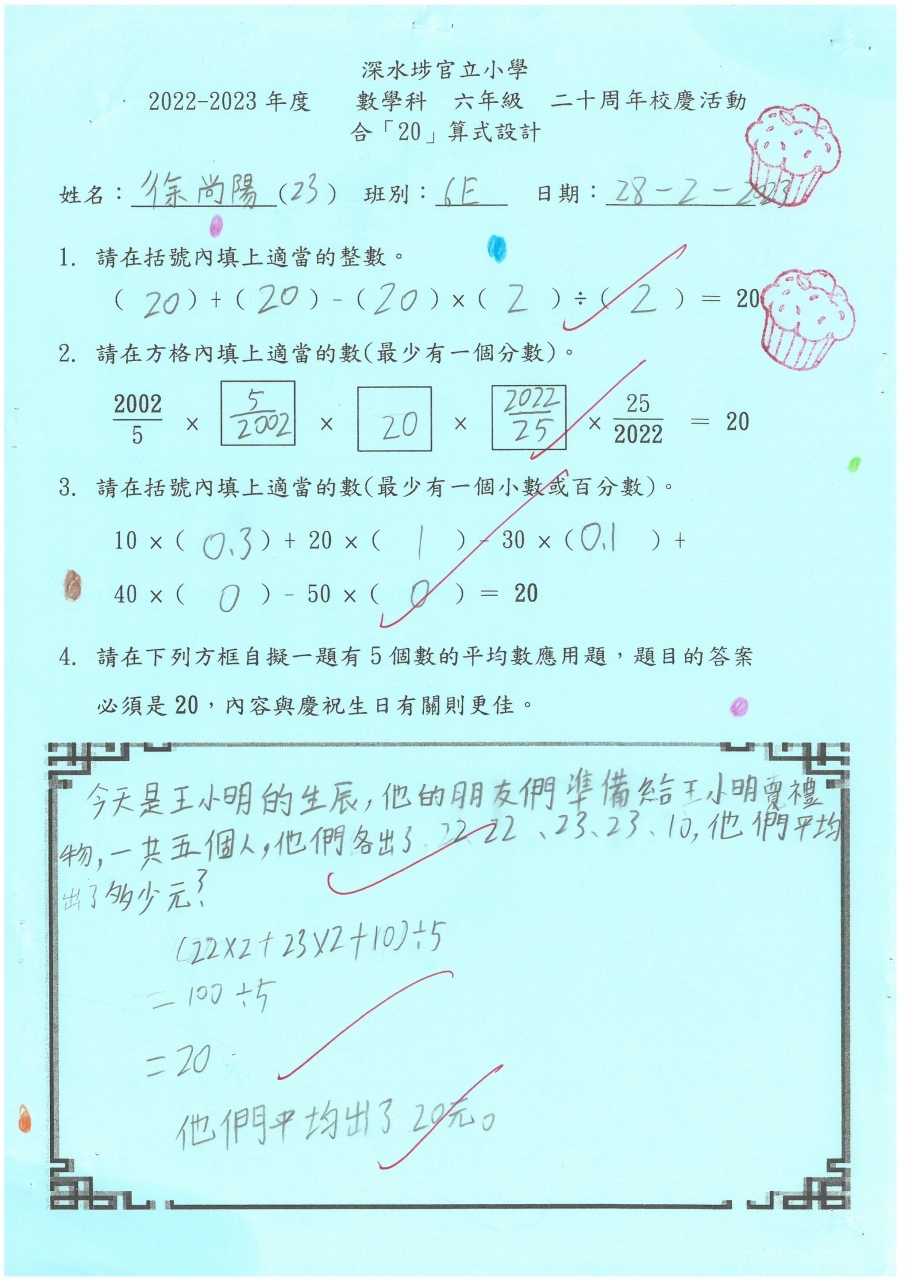 深水埗官立小學
2022-2023 年度 數學科 六年級 二十周年校慶活動
合「20」算式設計
姓名：徐尚陽(23) 班別：6E 日期：28-2-2023
1. 請在括號內填上適當的整數。
(20)+(20)-(20)×(2)÷(2) = 20
2. 請在方格內填上適當的數(最少有一個分數)。
2002/5 × 5/2002 × 20 × 2022/25 × 25/2022 = 20
3. 請在括號內填上適當的數(最少有一個小數或百分數)。
10 ×(0.3)+ 20 ×(1)- 30 ×(0.1)+
40 ×(0)- 50 ×(0)= 20
4. 請在下列方框自擬一題有 5 個數的平均數應用題，題目的答案
必須是 20，內容與慶祝生日有關則更佳。
今天是王小明的生辰,他的朋友們準備給王小明賣禮
物,一共五個人,他們各出了 22、22、23、23、10,他們平均
出了多少元?
(22×2+23×2+10)÷5
=100÷5
=20
他們平均出了20元。